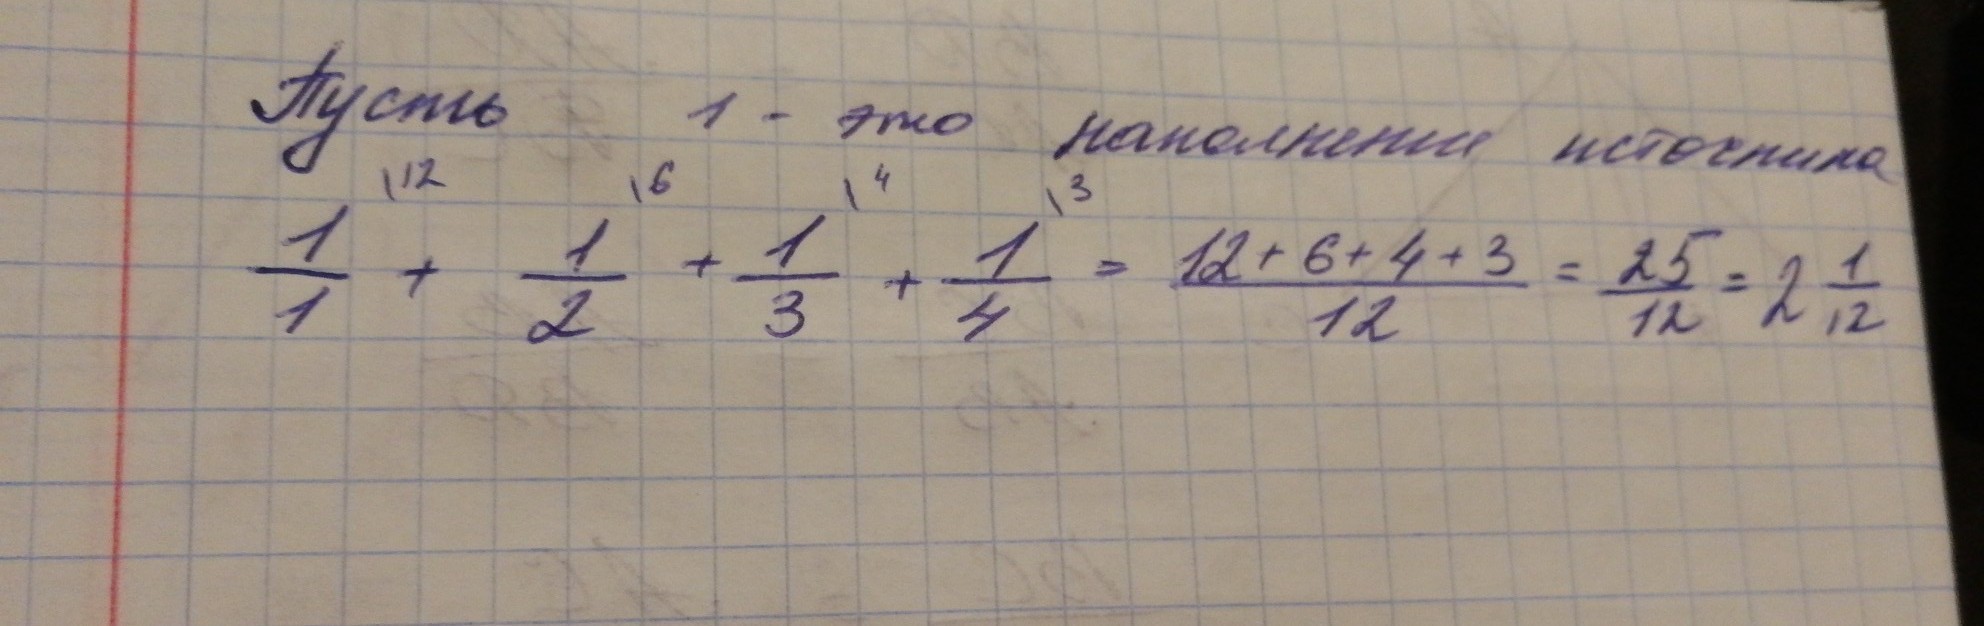 Пусть 1 - это наполнение источника
1/1 \12 + 1/2 \6 + 1/3 \4 + 1/4 \3 = (12+6+4+3)/12 = 25/12 = 2 1/12